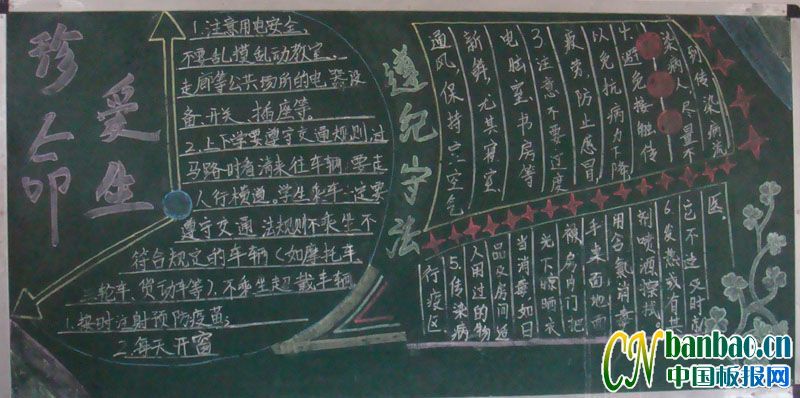 珍爱
生命
1.注意用电安全
不要乱摸乱动教室、
走廊等公共场所的电器设
备、开关、插座等。
2.上下学要遵守交通规则,过
马路时看清来往车辆,要走
人行横道。学生乘车一定要
遵守交通法规则不乘坐不
符合规定的车辆(如摩托车、
三轮车、货动车等),不乘坐超载车辆
1.按时注射预防疫苗;
2.每天开窗
遵纪守法
通风,保持室空气
新鲜,尤其寝室、
电脑室、书房等
3.注意不要过度
疲劳,防止感冒
以免抗病力下降
4.避免接触传
染病人,尽量不
到传染病流
行疫区
5.传染病
人用过的物
品及房间适
当消毒,如日
光下晾晒衣
被房内门把
手桌面地面
用含氯消毒
剂喷洒擦拭
6.发热或有其
它不适及时就
医。
CN banbao.cn
中国板报网